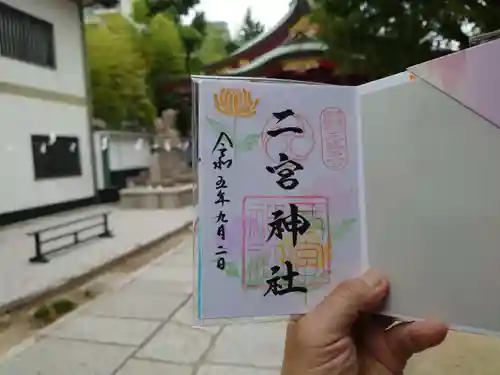 二宮神社
令和五年九月二日